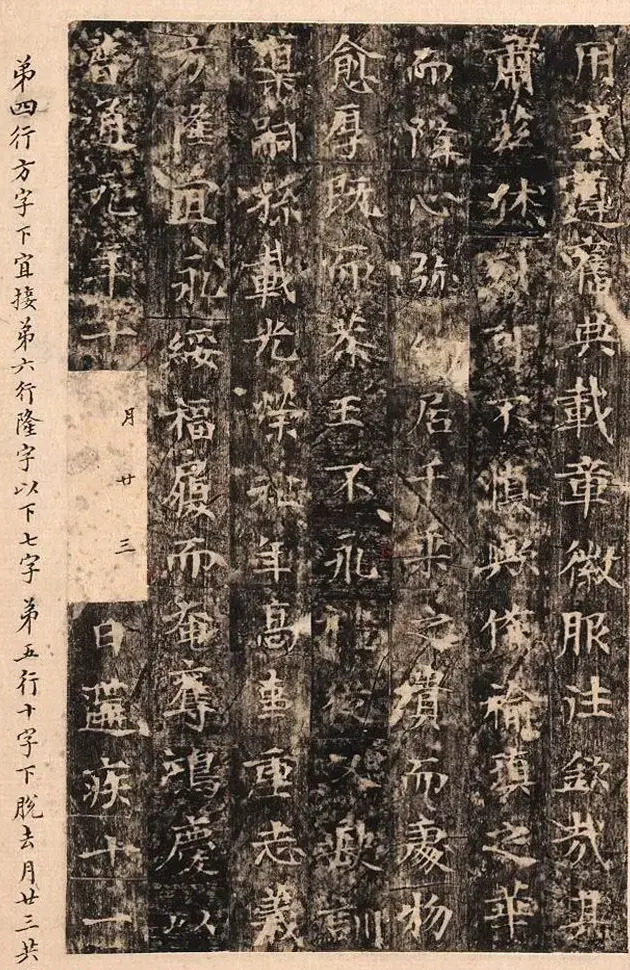 用式遵舊典載章徽服往欽哉其
肅茲休烈可不慎歟脩褕瑱之華
而降心弥居千乘之貴而處物
愈厚既而恭王不永禮從又歇訓
奬嗣孫載光榮祉年高事重志義
方隆宜永綏福履而奄奪鴻慶以
普通元年十月廿三日遘疾十一
弟四行方字下宜接弟六行隆字以下七字 弟五行十字下脫去月廿三共